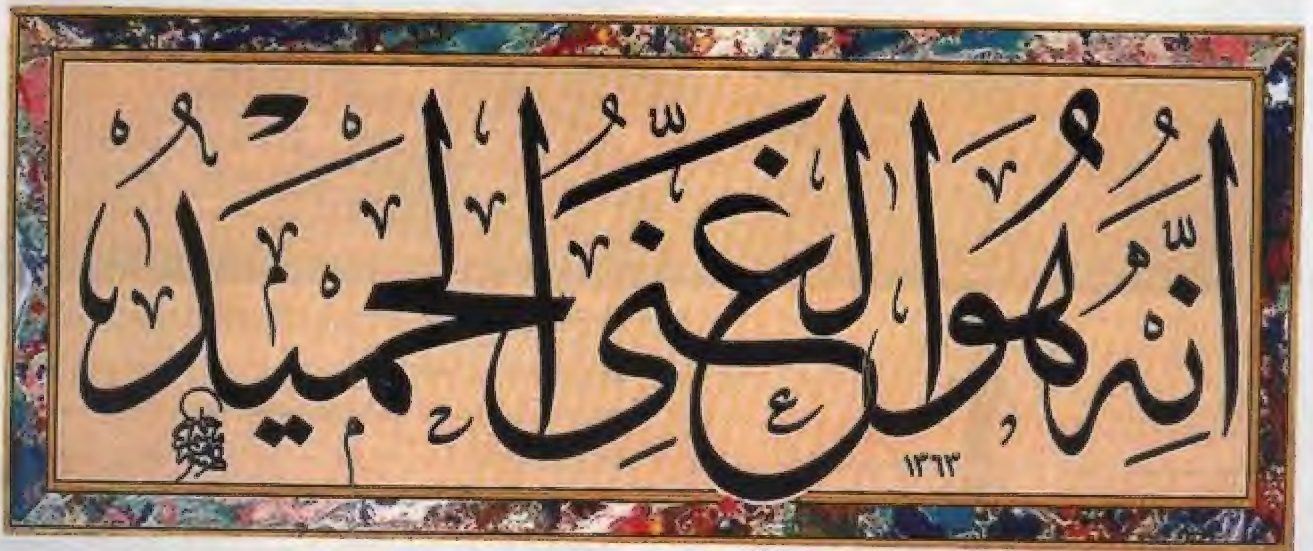 انّهُ هُوَ الغَنِىُّ الحَمِيدُ
١٣٦٣